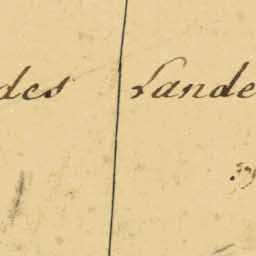 des Lande